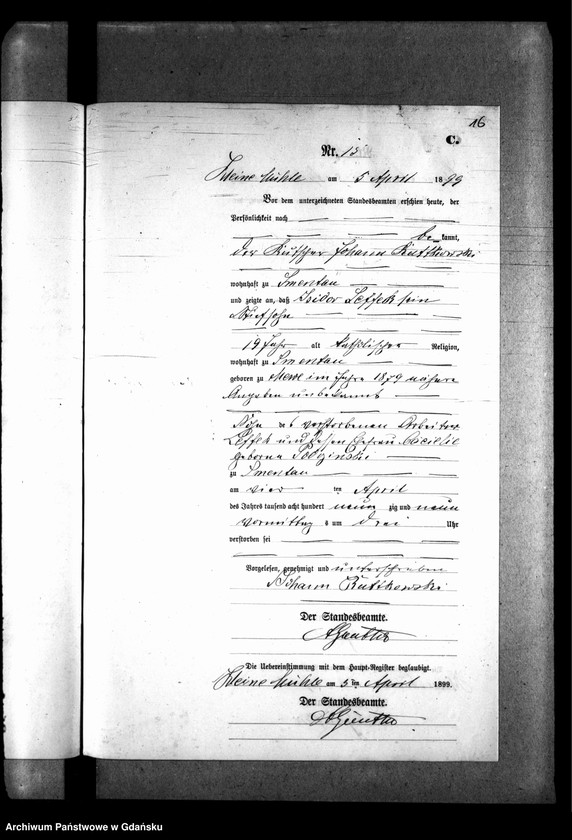 16
C.
Nr. 15
Kleine Mühle am 5 April 1899
Vor dem unterzeichneten Standesbeamten erschien heute, der
Persönlichkeit nach
be kannt,
der Kutscher Johann Ruttkowski
wohnhaft zu Smentau
und zeigte an, daß Isidor Leffek sein
Stiefsohn
19 Jahr alt katholischer Religion,
wohnhaft zu Smentau
geboren zu Mewe im Jahre 1879 nähere
Angaben unbekannt
Sohn des verstorbenen Arbeiters
Leffek und dessen Ehefrau Cäcilie
geborne
zu Smentau
am vier ten April
des Jahres tausend acht hundert neun zig und neun
Vormittag s um drei Uhr
verstorben sei
Vorgelesen, genehmigt und unterschrieben
Johann Ruttkowski
Der Standesbeamte.
Die Uebereinstimmung mit dem Haupt-Register beglaubigt.
Kleine Mühle am 5 ten April 1899.
Der Standesbeamte.
Archiwum Państwowe w Gdańsku